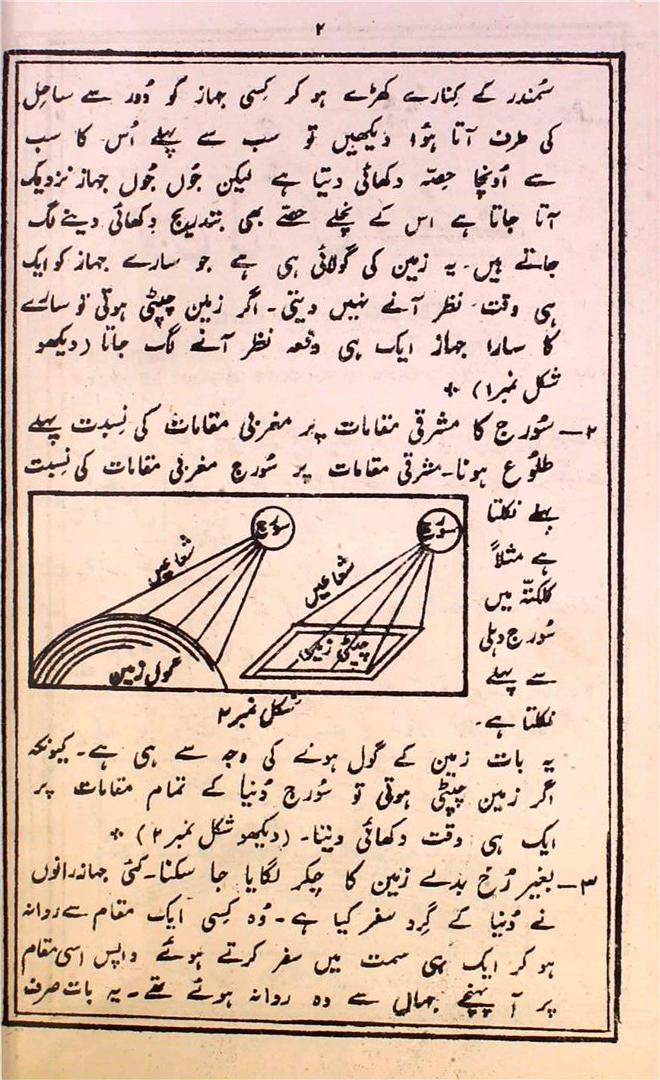 ۲
سُمندر کے کِنارے کھڑے ہو کر کِسی جہاز کو دُور سے ساحِل
کی طرف آتا ہُوا دیکھیں تو سب سے پہلے اُس کا سب
سے اُونچا حِصّہ دکھائی دیتا ہے لیکن جُوں جُوں جہاز نزدیک
آتا جاتا ہے اس کے نِچلے حصّے بھی بتدریج دِکھائی دینے لگ
جاتے ہیں۔ یہ زمین کی گولائی ہی ہے جو سارے جہاز کو ایک
ہی وقت نظر آنے نہیں دیتی۔ اگر زمین چپٹی ہوتی تو سارے
کا سارا جہاز ایک ہی دفعہ نظر آنے لگ جاتا (دیکھو
شکل نمبر ۱) ٭
۲۔ سُورج کا مشرقی مقامات پر مغربی مقامات کی نِسبت پہلے
طلُوع ہونا۔ مشرقی مقامات پر سُورج مغربی مقامات کی نسبت
پہلے نکلتا
ہے مثلاً
کلکتّہ میں
سُورج دہلی
سے پہلے
نکلتا ہے۔
سورج
شعاعیں
گول زمین
سورج
شعاعیں
چپٹی زمین
شکل نمبر ۲
یہ بات زمین کے گول ہونے کی وجہ سے ہی ہے۔ کیونکہ
اگر زمین چپٹی ہوتی تو سُورج دُنیا کے تمام مقامات پر
ایک ہی وقت دکھائی دیتا۔ (دیکھو شکل نمبر ۲) ٭
۳۔ بغیر رُخ بدلے زمین کا چکر لگایا جا سکنا۔ کئی جہاز رانوں
نے دُنیا کے گِرد سفر کیا ہے۔ وُہ کِسی ایک مقام سے روانہ
ہو کر ایک ہی سمت میں سفر کرتے ہوئے واپس اسی مقام
پر آ پہنچے جہاں سے وہ روانہ ہوئے تھے۔ یہ بات صرف